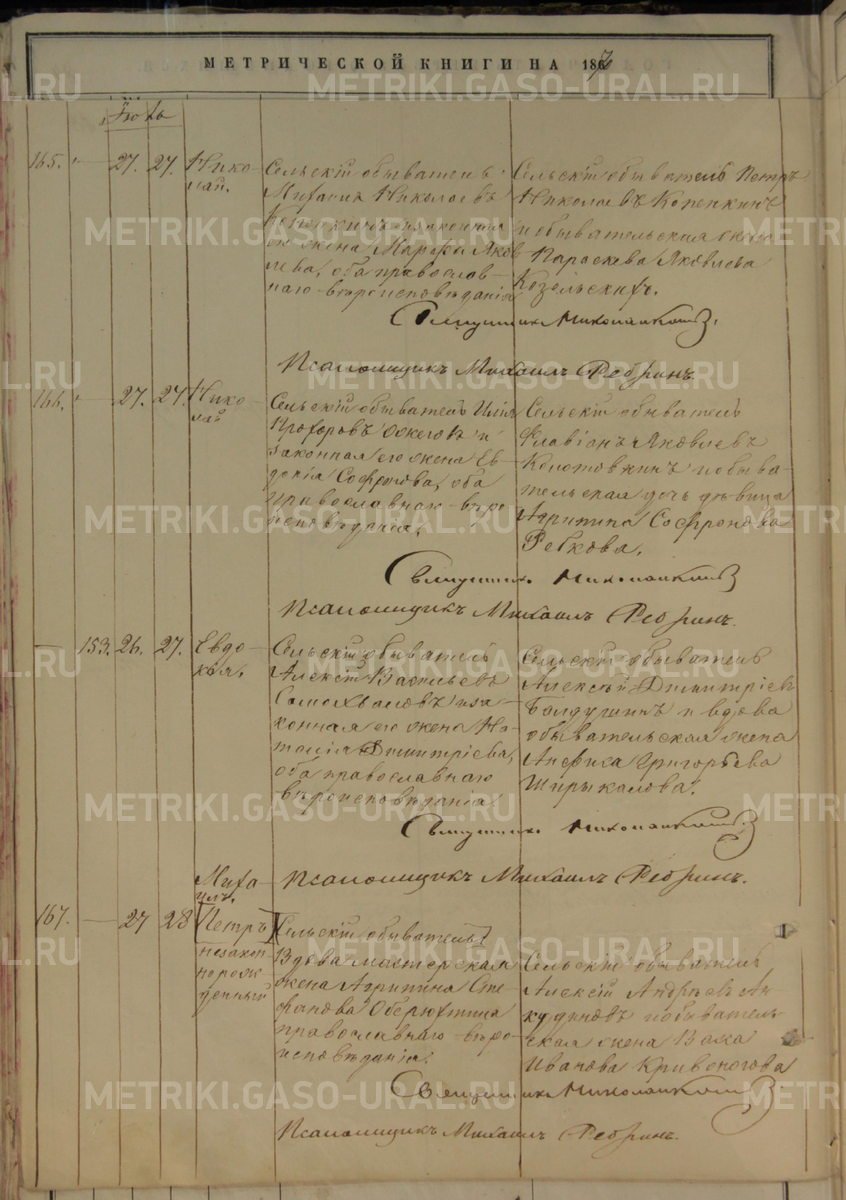 МЕТРИЧЕСКОЙ КНИГИ НА 1867
Іюль
165. " 27. 27. Нико-
лай.
Сельскій обыватель
Михаилъ Николаевъ
и законная
его жена Марфа Яков-
лева, оба православ-
наго вѣроисповѣданія
Сельскій обыватель Петръ
Николаевъ Копенкинъ
и обывательская жена
Параскева Яковлева
Козельскихъ.
Священникъ
Псаломщикъ Михаилъ Ребринъ.
166. " 27. 27. Нико-
лай
Сельскій обыватель Илія
Прохоровъ Ожеговъ и
законная его жена Ев-
докія Софронова, оба
православнаго вѣро-
исповѣданія.
Сельскій обыватель
Флавіанъ Яковлевъ
Колотовкинъ и обыва-
тельская дочь дѣвица
Агрипина Софронова
Ребкова.
Священникъ
Псаломщикъ Михаилъ Ребринъ.
— 153. 26. 27. Евдо-
кія.
Сельскій обыватель
Алексій Васильевъ
Самохваловъ и за-
конная его жена На-
талія Димитріева,
оба православнаго
вѣроисповѣданія.
Сельскій обыватель
Алексѣй Димитріевъ
Балдушинъ и вдова
обывательская жена
Анфиса Григорьева
Ширыкалова.
Священникъ
Псаломщикъ Михаилъ Ребринъ.
167. — 27 28 Миха-
илъ.
[Петръ]
незакон-
норож-
денный
[Сельскій обыватель]
Вдова мастерская
жена Агрипина Сте-
фанова Оберюхтина
православнаго вѣро-
исповѣданія.
Сельскій обыватель
Алексій Андреевъ Ах-
кудиновъ и обыватель-
ская жена Васса
Иванова Кривоногова
Священникъ
Псаломщикъ Михаилъ Ребринъ.
METRIKI.GASO-URAL.RU